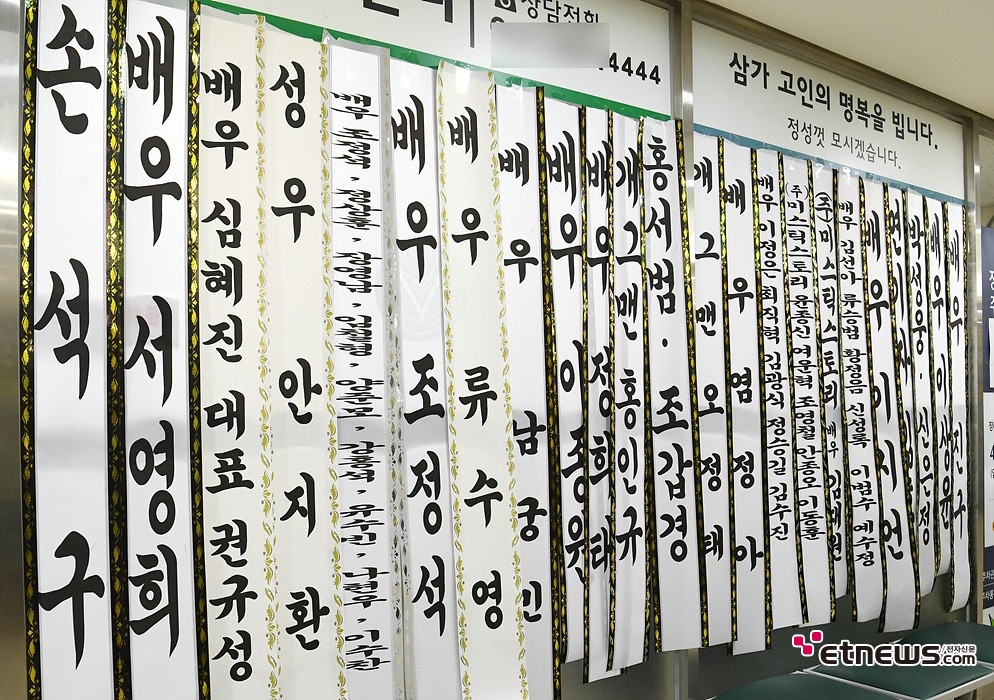 상담전화
4444
삼가 고인의 명복을 빕니다.
정성껏 모시겠습니다.
손석구
배우 서영희
배우 심혜진 대표 권규성
성우 안지환
배우
배우 조정석
배우 류수영
배우 남궁민
배우 이종원
배우 정희태
개그맨 홍인규
홍서범 · 조갑경
개그맨 오정태
배우 염정아
배우 이정은 최직혁 김광식 정승길 김수진
(주)미스틱스토리 윤종신 여운혁 조영철 안종오 이동훈
(주)미스틱스토리 배우 김태원
배우 김선아 류승범 황정음 신성록 이범수 예수정
배우 이시언
연기자
박성웅 · 신은정
배우 이상윤
배우 진구
etnews.com
전자신문